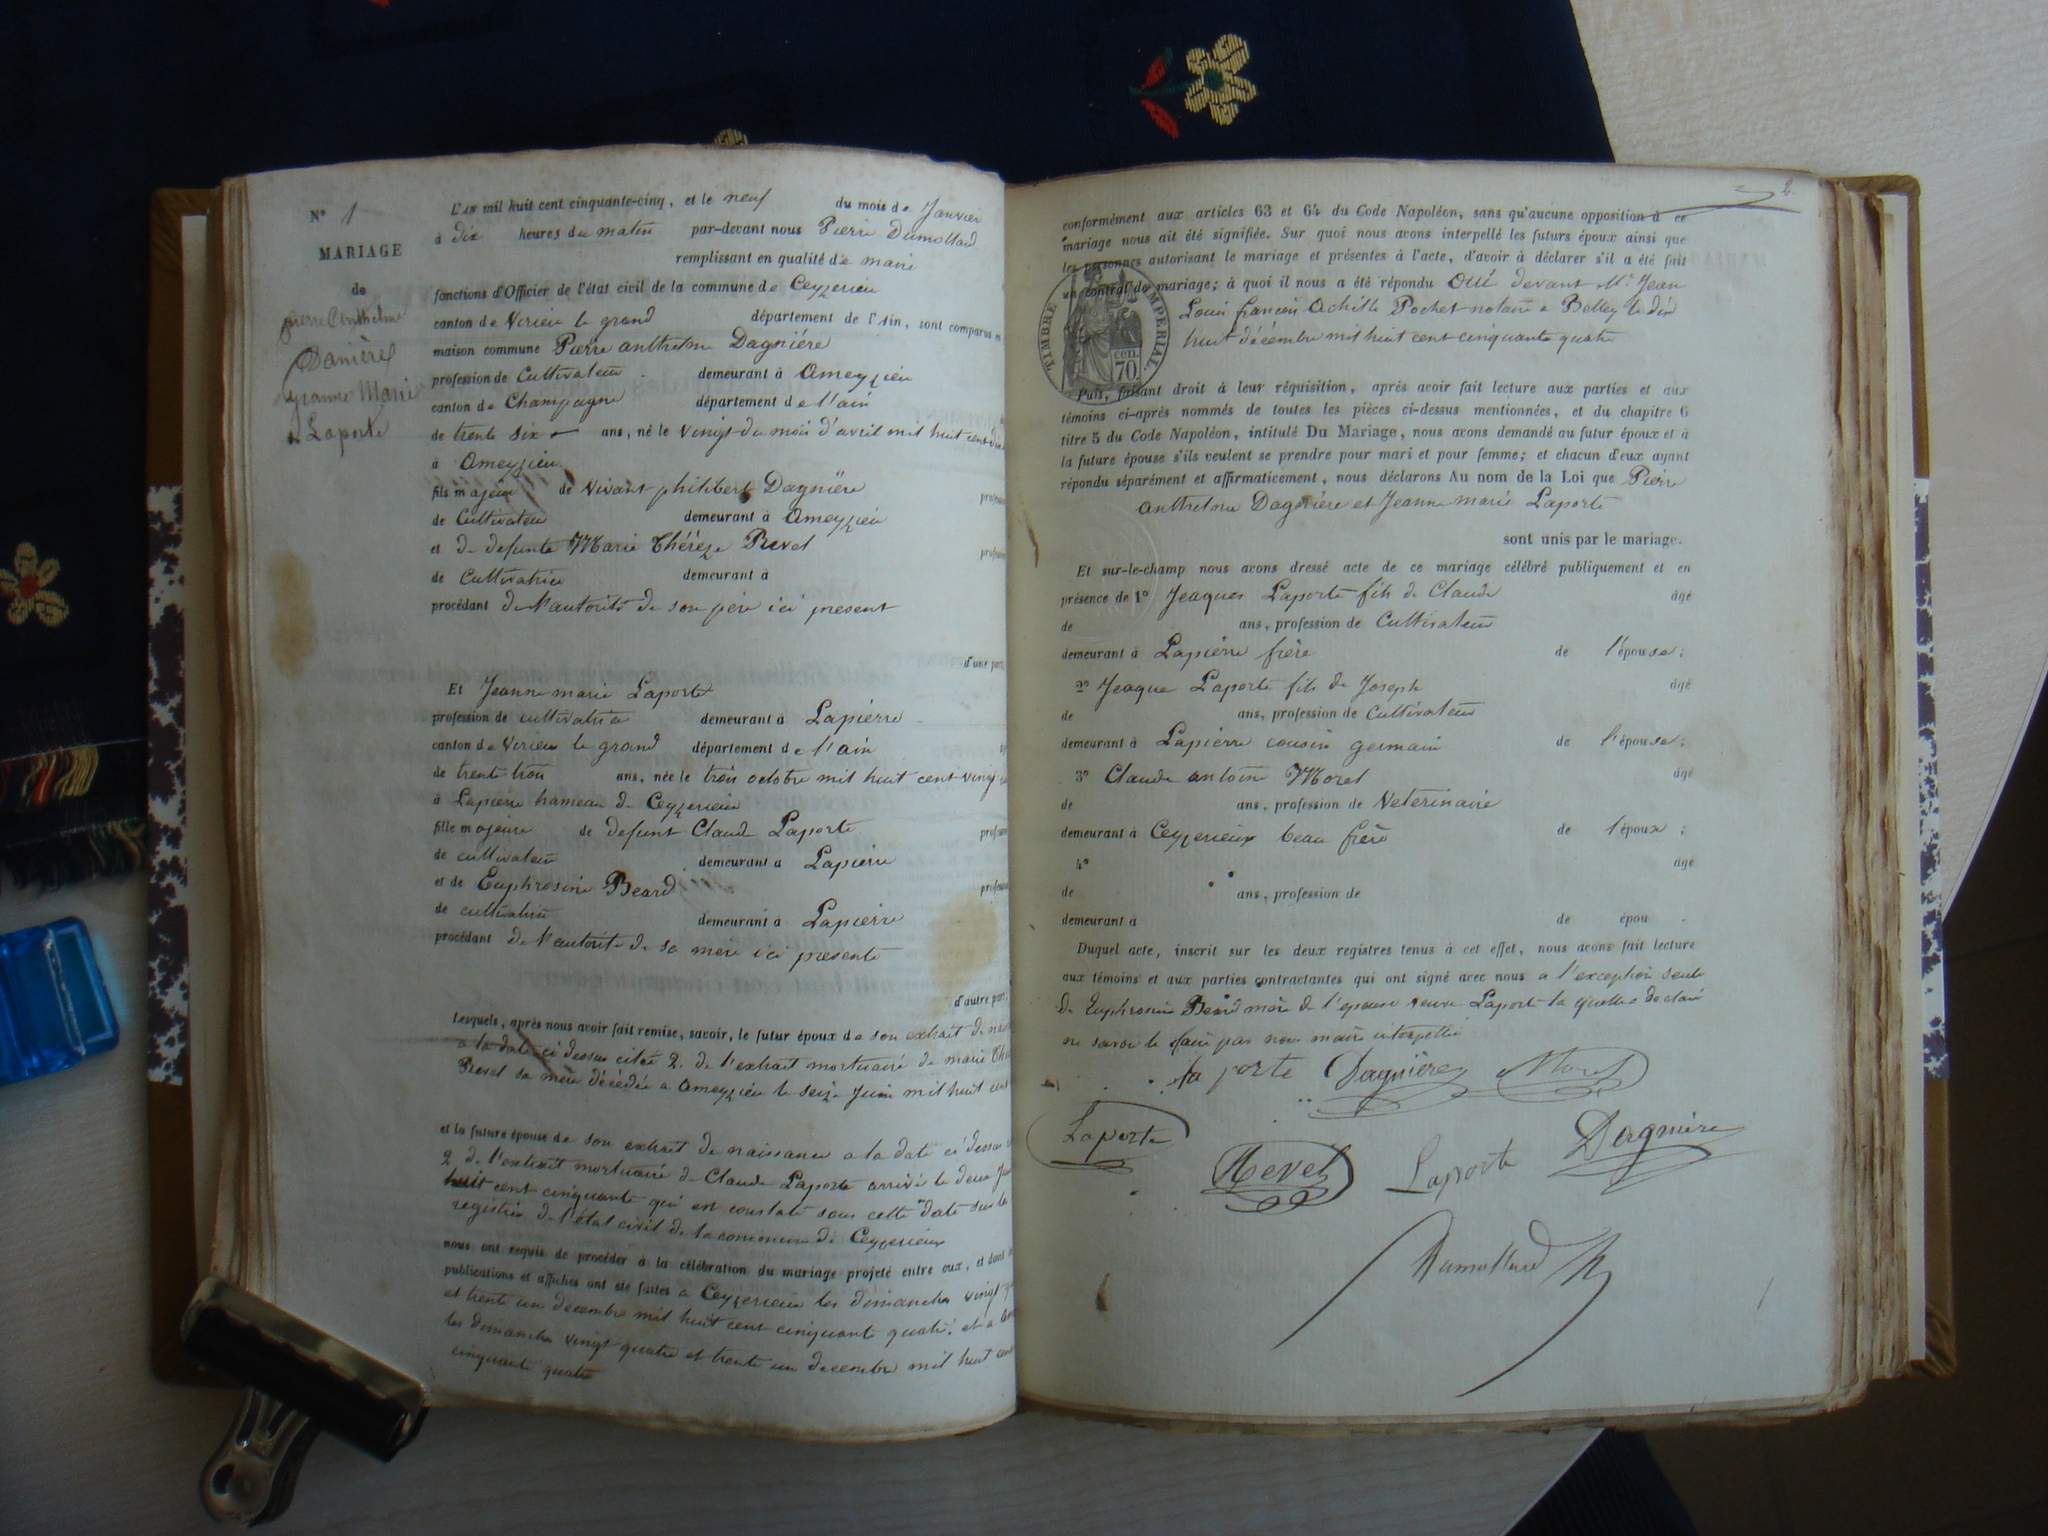 N° 1
MARIAGE
de
pierre Anthelme
Danière
Jeanne Marie
Laporte
L'an mil huit cent cinquante-cinq, et le neuf du mois de Janvier
à dix heures du matin par-devant nous Pierre Dumollard
remplissant en qualité de maire
fonctions d'Officier de l'état civil de la commune de Ceyzerieu
canton de Virieu le grand département de l'Ain, sont comparus en
maison commune Pierre anthelme Dagnière
profession de Cultivateur demeurant à Ameyzieu
canton de Champagne département de l'ain
de trente six ans, né le vingt du mois d'avril mil huit cent dix
à Ameyzieu
fils majeur de vivant philibert Dagnière profess
de Cultivateur demeurant à Ameyzieu
et de defunte Marie Thérèze Revel profess
de Cultivatrice demeurant à
procédant de l'autorité de son père ici present
d'une part.
Et Jeanne marie Laporte
profession de cultivatrice demeurant à Lapierre
canton de Virieu le grand département de l'ain
de trente trois ans, née le trois octobre mil huit cent vingt
à Lapierre hameau de Ceyzerieu
fille majeure de defunt Claude Laporte profess
de cultivateur demeurant à Lapierre
et de Euphrosine Beard profess
de cultivatrice demeurant à Lapierre
procédant de l'autorité de sa mère ici presente
d'autre part.
Lesquels, après nous avoir fait remise, savoir, le futur époux de son extrait de
a la date ci dessus citée 2. de l'extrait mortuaire de marie
Revel sa mère décédée a Ameyzieu le seize Juin mil huit cent
et la future épouse de son extrait de naissance a la date ci dessus
2 de l'extrait mortuaire de Claude Laporte arrivé le deux
huit cent cinquante qui est constaté sous cette date sur les
registres de l'état civil de la commune de Ceyzerieu
nous ont requis de procéder à la célébration du mariage projeté entre eux, et dont
publications et affiches ont été faites a Ceyzerieu les dimanches vingt
et trente un decembre mil huit cent cinquante quatre et a
les dimanches vingt quatre et trente un decembre mil huit cent
cinquante quatre
2.
conformément aux articles 63 et 64 du Code Napoléon, sans qu'aucune opposition à ce
mariage nous ait été signifiée. Sur quoi nous avons interpellé les futurs époux ainsi que
les personnes autorisant le mariage et présentes à l'acte, d'avoir à déclarer s'il a été fait
un contrat de mariage; à quoi il nous a été répondu Oui devant Me Jean
Louis françois Achille Pochet notaire a Belley le dix
huit décembre mil huit cent cinquante quatre
TIMBRE IMPERIAL
70 cen.
Puis, faisant droit à leur réquisition, après avoir fait lecture aux parties et aux
témoins ci-après nommés de toutes les pièces ci-dessus mentionnées, et du chapitre 6
titre 5 du Code Napoléon, intitulé Du Mariage, nous avons demandé au futur époux et à
la future épouse s'ils veulent se prendre pour mari et pour femme; et chacun d'eux ayant
répondu séparément et affirmativement, nous déclarons Au nom de la Loi que Pierre
anthelme Dagnière et Jeanne marie Laporte
sont unis par le mariage.
Et sur-le-champ nous avons dressé acte de ce mariage célébré publiquement et en
présence de 1° Jeaques Laporte fils de Claude âgé
de ans, profession de Cultivateur
demeurant à Lapierre frère de l'épouse;
2° Jeaque Laporte fils de Joseph âgé
de ans, profession de Cultivateur
demeurant à Lapierre cousin germain de l'épouse;
3° Claude antoine Morel âgé
de ans, profession de Veterinaire
demeurant à Ceyzerieux beau frère de l'époux;
4° âgé
de ans, profession de
demeurant à de épou
Duquel acte, inscrit sur les deux registres tenus à cet effet, nous avons fait lecture
aux témoins et aux parties contractantes qui ont signé avec nous a l'exception seule
de Euphrosine Beard mère de l'epouse veuve Laporte la quelle a declaré
ne savoir le faire par nous maire interpellée
La porte Dagnière Morel
Laporte
Revel Laporte Dagnière
Dumollard